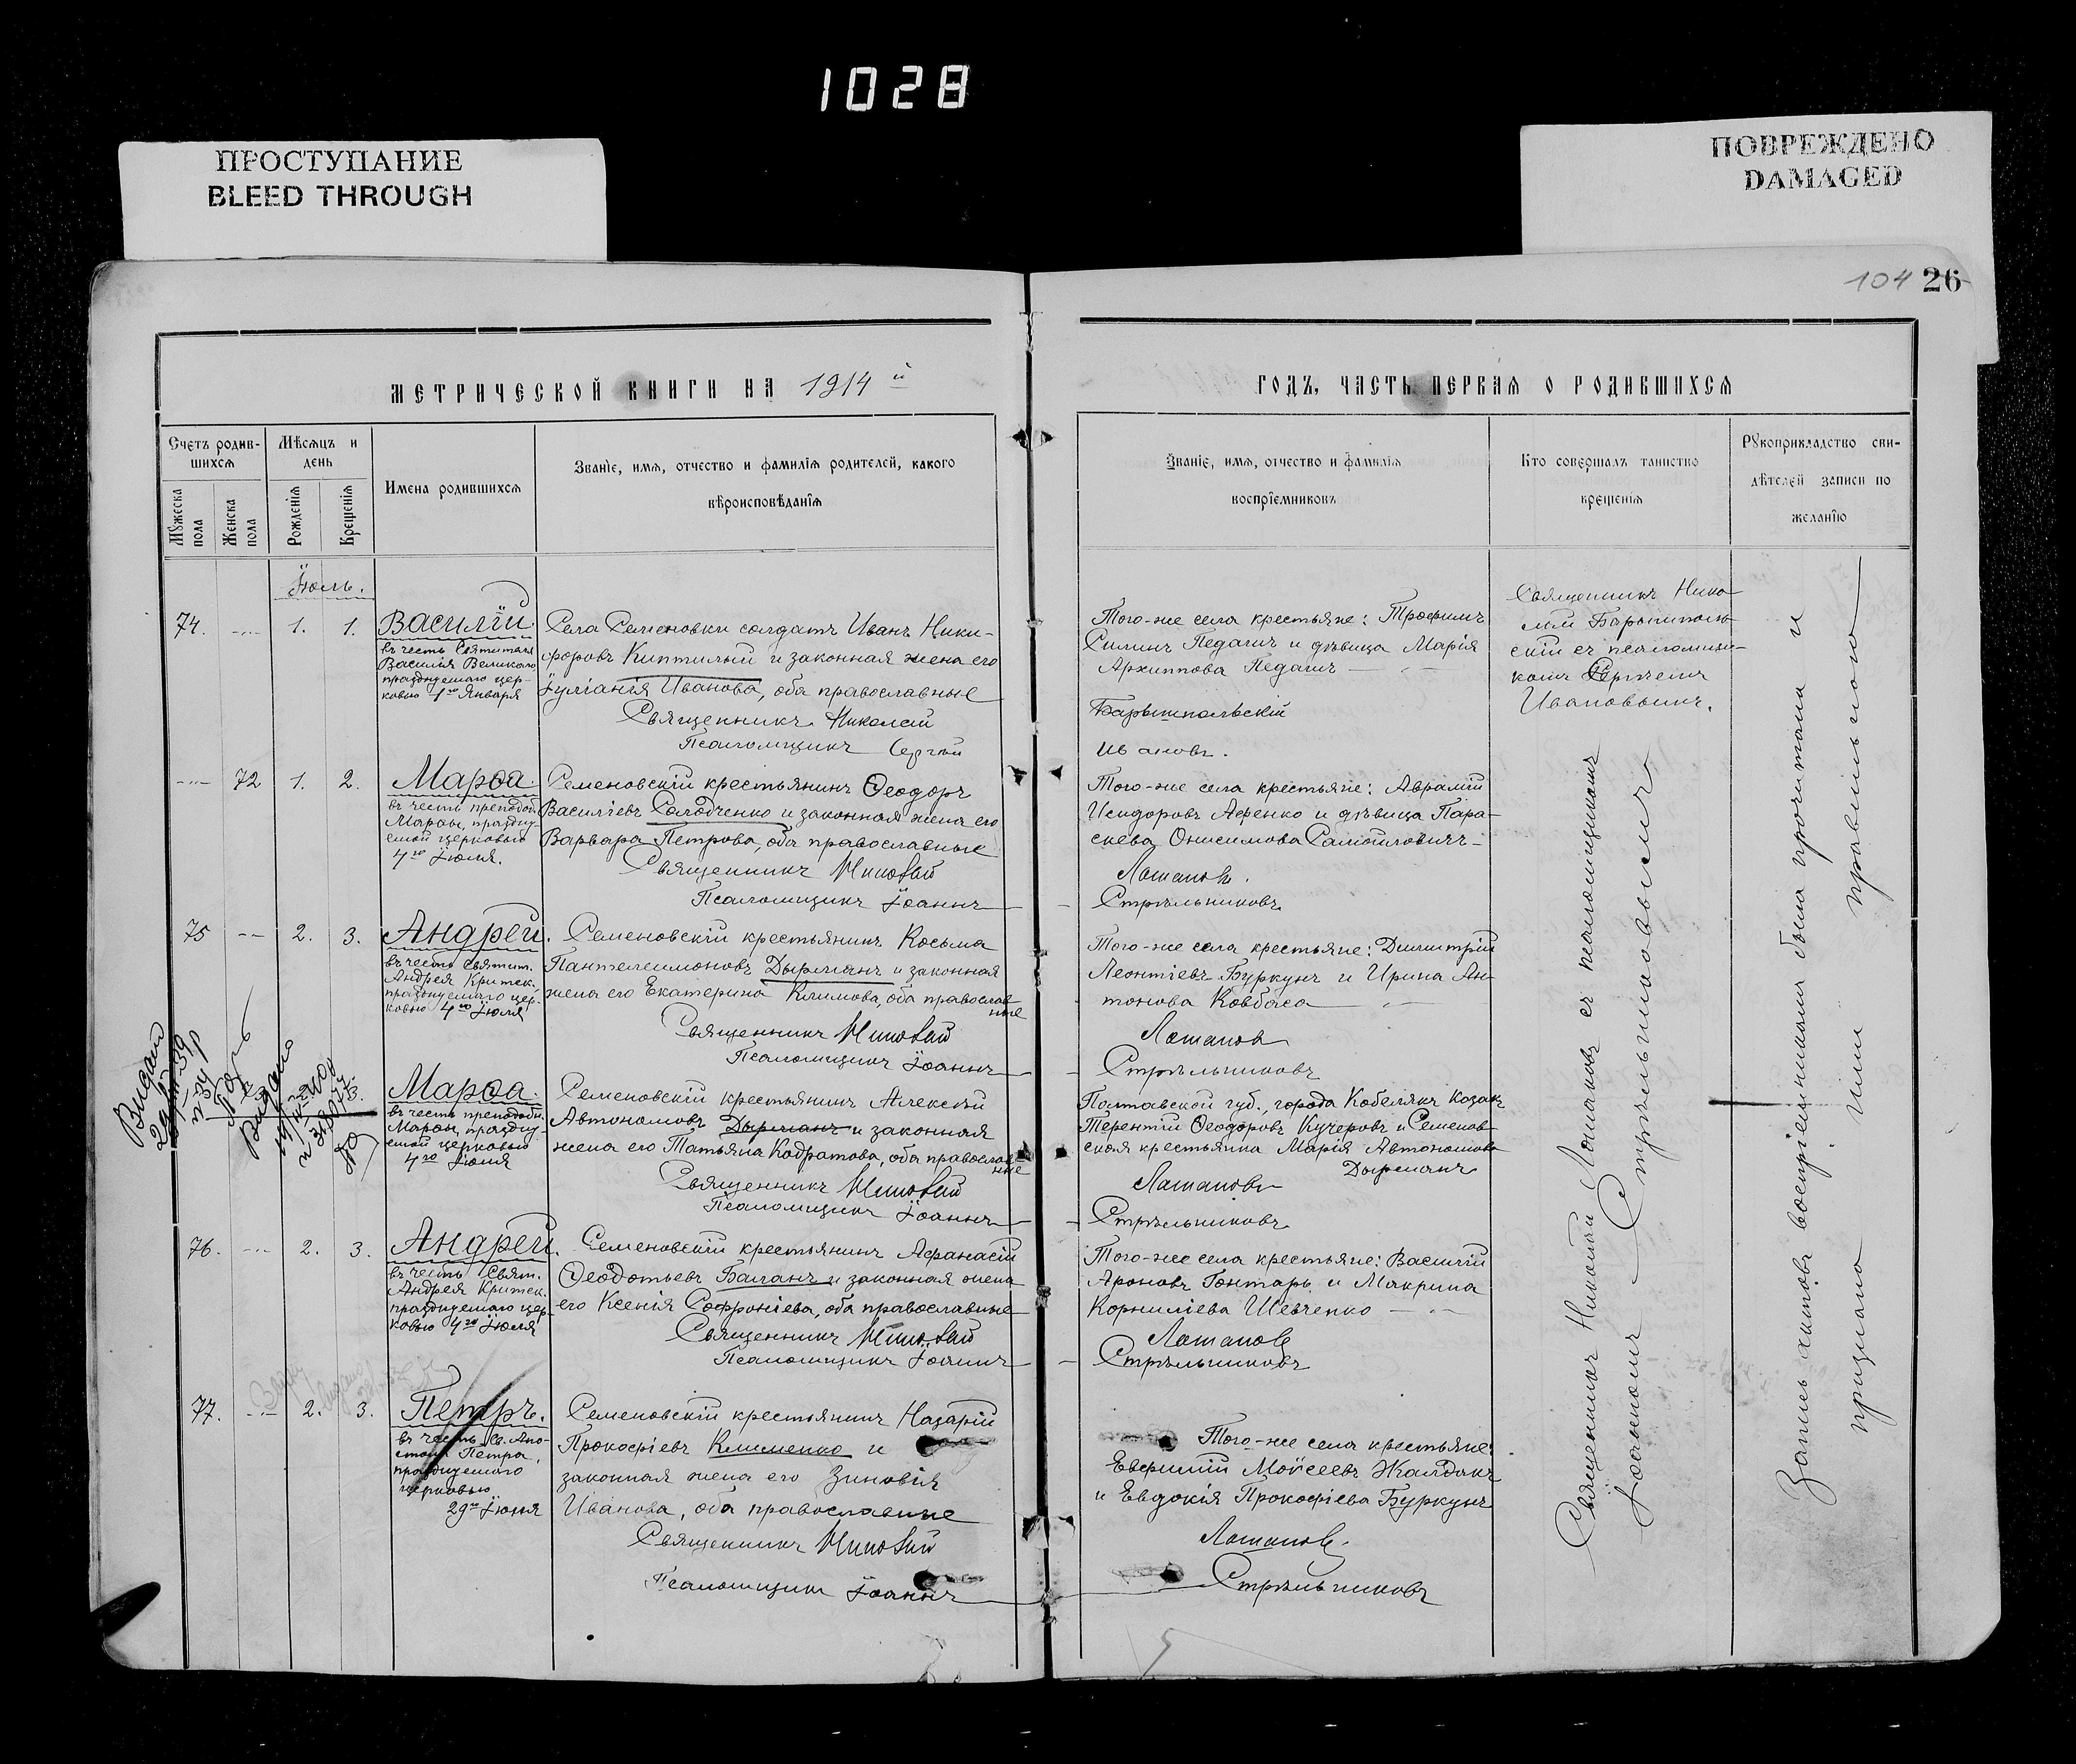 1028
ПРОСТУПАНИЕ
BLEED THROUGH
ПОВРЕЖДЕНО
DAMAGED
104 26
МЕТРИЧЕСКОЙ КНИГИ НА 1914й
ГОДЪ, ЧАСТЬ ПЕРВАЯ О РОДИВШИХСЯ
Счетъ родив-
шихся
Мужеска
пола
Женска
пола
Мѣсяцъ и
день
Рожденія
Крещенія
Имена родившихся
Званіе, имя, отчество и фамилія родителей, какого
вѣроисповѣданія
Званіе, имя, отчество и фамилія
воспріемниковъ
Кто совершалъ таинство
крещенія
Рукоприкладство сви-
дѣтелей записи по
желанію
Іюль.
74. 1. 1.
Василій
въ честь Святителя
Василія Великаго
празднуемаго цер-
ковью 1го Января
Села Семеновки солдатъ Иванъ Ники-
форовъ Киптилый и законная жена его
Іуліанія Иванова, оба православные
Священникъ Николай
Псаломщикъ Сергій
Того-же села крестьяне: Трофимъ
Силинъ Педагичъ и дѣвица Марія
Архиппова Педагичъ
Барышпольскій
Ивановъ.
Священникъ Нико-
лай Барышполь-
скій съ псаломщи-
комъ Сергѣемъ
Ивановымъ.
72 1. 2.
Марѳа.
въ честь преподоб.
Марѳы, праздну-
емой церковью
4го Іюля.
Семеновскій крестьянинъ Ѳеодоръ
Василіевъ Солодченко и законная жена его
Варвара Петрова, оба православные
Священникъ Николай
Псаломщикъ Іоаннъ
Того-же села крестьяне: Аврамій
Исидоровъ Афенко и дѣвица Пара-
скева Онисимова Самойловичъ
Лотановъ.
Стрѣльниковъ
75 2. 3.
Андрей.
въ честь Святит.
Андрея Критск.
празднуемаго цер-
ковью 4го Іюля
Семеновскій крестьянинъ Косьма
Пантелеимоновъ Дырманъ и законная
жена его Екатерина Климова, оба православ
ные
Священникъ Николай
Псаломщикъ Іоаннъ
Того-же села крестьяне: Димитрій
Леонтіевъ Буркунъ и Ирина Ан-
тонова Ковбаса
Лотановъ
Стрѣльниковъ
73 2. 3.
Марѳа.
въ честь преподобн.
Марѳы, праздну-
емой церковью
4го Іюля
Семеновскій крестьянинъ Алексѣй
Автономовъ Дырманъ и законная
жена его Татьяна Кодратова, оба православ
ные
Священникъ Николай
Псаломщикъ Іоаннъ
Полтавской губ., города Кобелякъ козакъ
Терентій Ѳеодоровъ Кучеровъ и Семенов-
ская крестьянка Марія Автономова
Дырманъ
Лотановъ
Стрѣльниковъ
76. 2. 3.
Андрей.
въ честь Свят.
Андрея Критск.
празднуемаго цер-
ковью 4го Іюля
Семеновскій крестьянинъ Афанасій
Ѳеодотьевъ Баланъ и законная жена
его Ксенія Софроніева, оба православные
Священникъ Николай
Псаломщикъ Іоаннъ
Того-же села крестьяне: Василій
Ароновъ Гонтарь и Макрина
Корниліева Шевченко
Лотановъ
Стрѣльниковъ
77. 2. 3.
Петръ.
въ честь Св. Апо-
стола Петра,
празднуемаго
церковью
29го Іюня
Семеновскій крестьянинъ Назарій
Прокофіевъ Клименко и
законная жена его Зиновія
Иванова, оба православные
Священникъ Николай
Псаломщикъ Іоаннъ
Того-же села крестьяне:
Евфимій Моисеевъ Жалдакъ
и Евдокія Прокофіева Буркунъ
Лотановъ.
Стрѣльниковъ
Священникъ Николай Лотановъ съ псаломщикомъ
Іоанномъ Стрѣльниковымъ
Запись актовъ воспріемниками была прочитана и
признана ими правильною